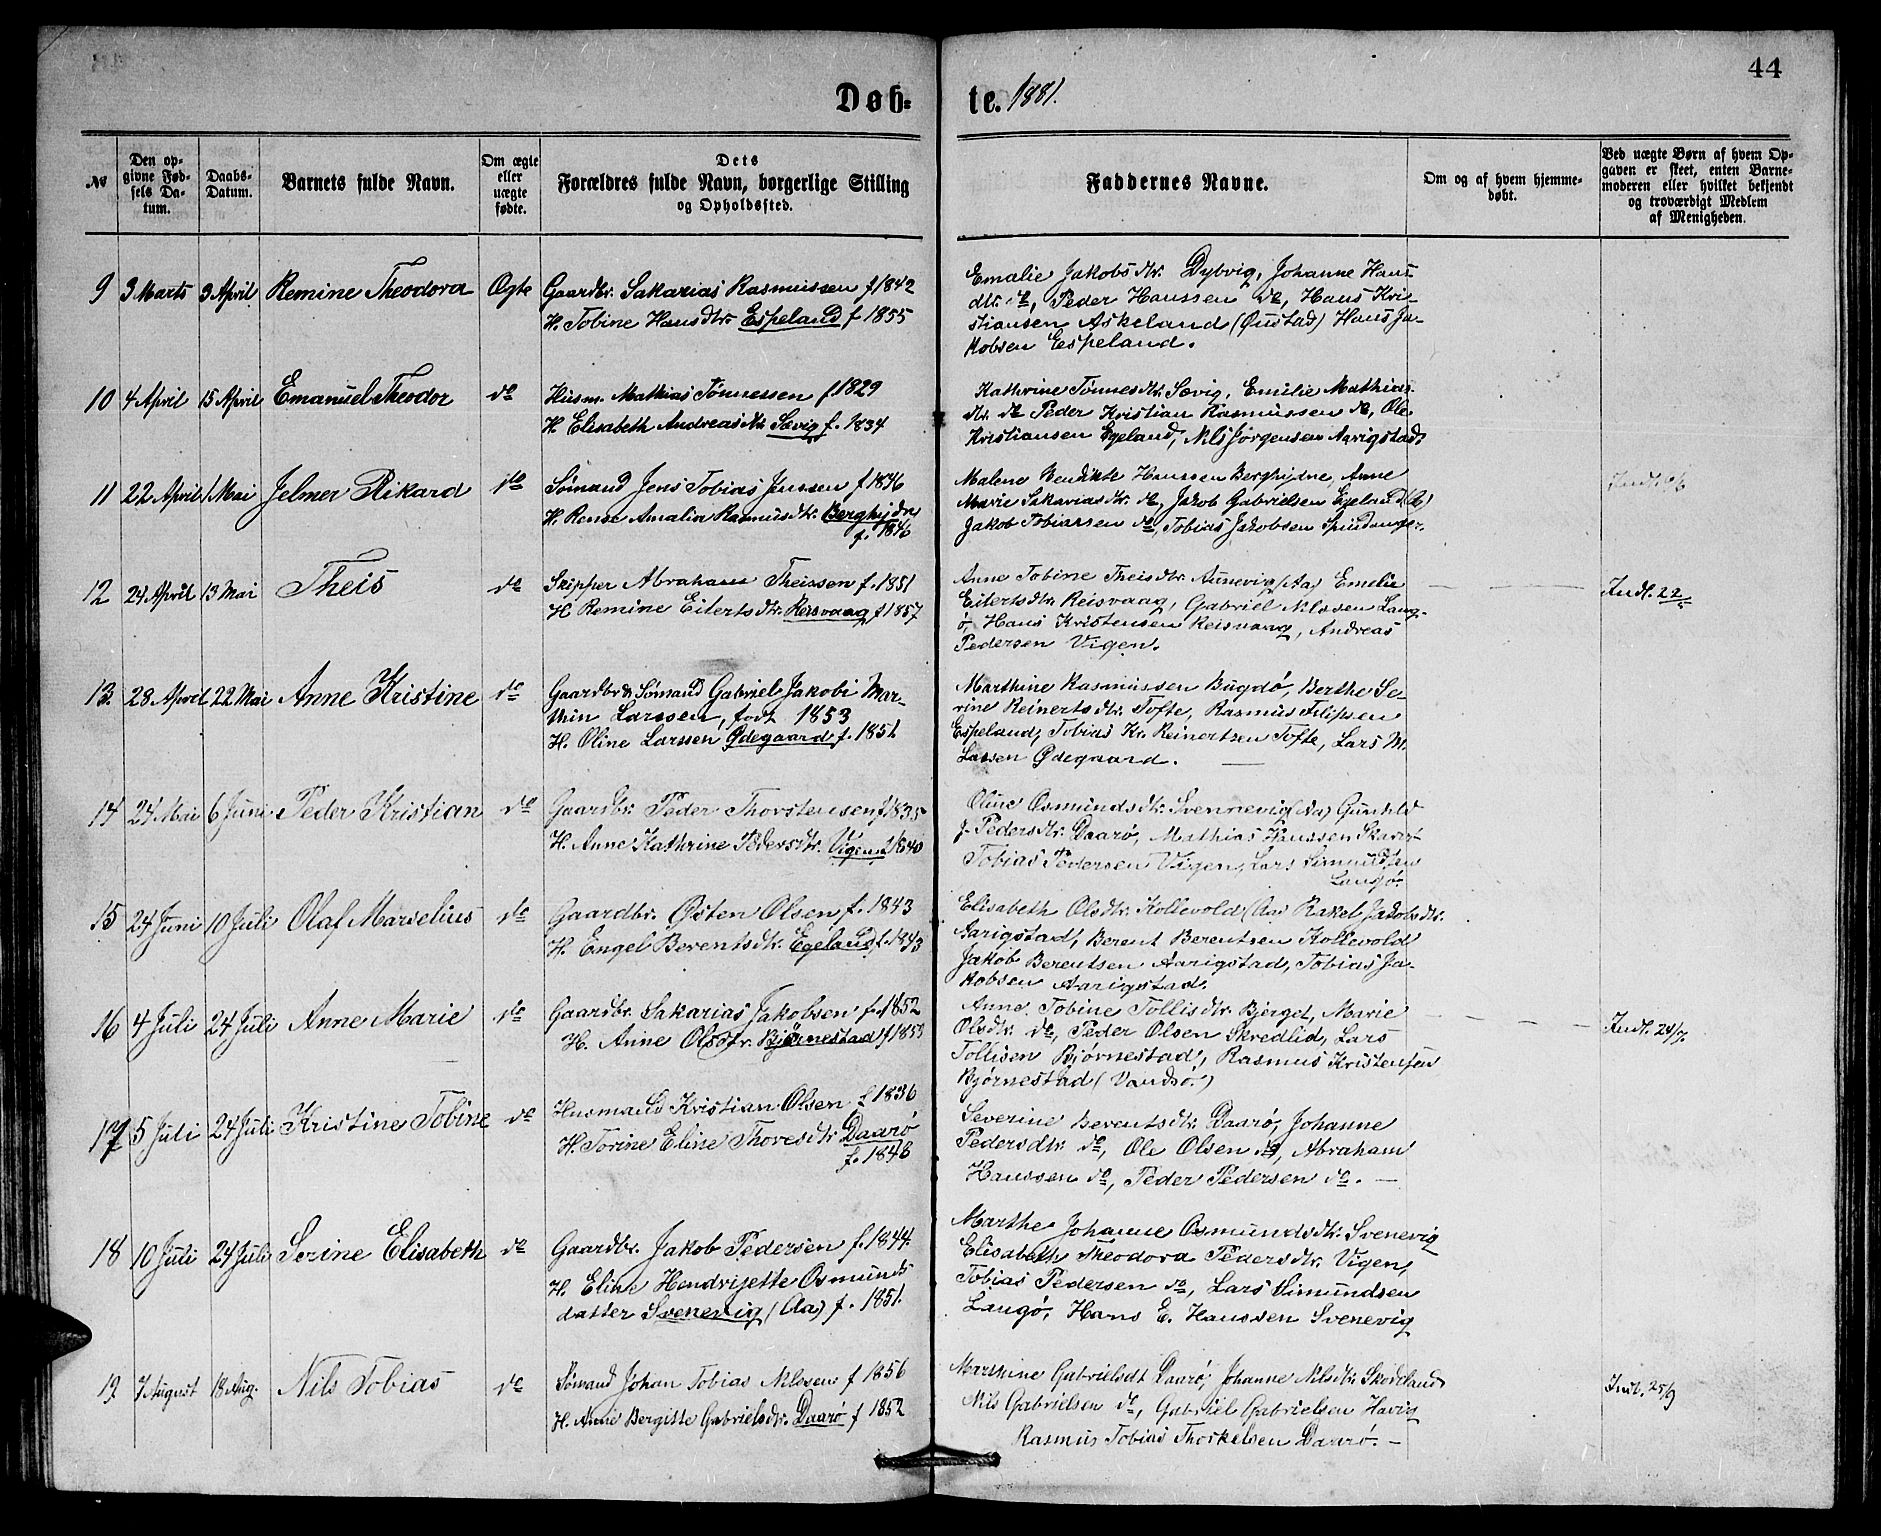 44
Døb- te. 1881.
No
Den opgivne Fødsels Datum.
Daabs-Datum.
Barnets fulde Navn.
Om ægte eller uægte fødte.
Dets Forældres fulde Navn, borgerlige Stilling og Opholdssted.
Faddernes Navne.
Om og af hvem hjemmedøbt.
Ved uægte Børn af hvem Opgaven er skeet, enten Barnemoderen eller hvilket bekjendt og troværdigt Medlem af Menigheden.
9 3 Marts 3 April Remine Theodora Ægte Gaardbr. Sakarias Rasmussen f 1842
H. Tobine Hansdtr. Espeland f 1855
Emalie Jakobsdtr. Dybvig, Johanne Hans
dtr. do, Peder Hanssen do, Hans Kri-
stiansen Askeland (Øustad) Hans Ja-
kobsen Espeland.
10 4 April 15 April Emanuel Theodor do Husm. Mathias Tønnessen f 1829
H. Elisabeth Andreasdtr Sævig f. 1834
Kathrine Tønnesdtr. Sævig, Emilie Mathias
dtr. do Peder Kristian Rasmussen do, Ole
Kristiansen Egeland, Nils Jørgensen Aarigstad
11 22 April 1 Mai Jelmer Rikard do Sømand Jens Tobias Jenssen f 1846
H. Rense Amalia Rasmusdtr. Berghydne
f. 1846
Malene Bendikte Hanssen Berghydne, Anne
Marie Sakariasdtr. do, Jakob Gabrielsen Egeland (A)
Jakob Tobiassen do, Tobias Jakobsen Spindanger.
12 24 April 13 Mai Theis do Skipper Abraham Theissen f. 1851
H. Remine Eilertsdtr. Reisvaag f 1857
Anne Tobine Theisdtr. Aunevig (Aa) Emelie
Eilertsdtr. Reisvaag, Gabriel Nilssen Lang-
ø, Hans Kristensen Reisvaag, Andreas
Pedersen Vigen.
Indl. 22/5
13. 28 April 22 Mai Anne Kristine do Gaardbr & Sømand Gabriel Jakobi Mar-
thin Larssen, født 1853
H. Oline Larssen Ødegaard f. 1851
Marthine Rasmussen Bugdø, Berthe Se-
rine Reinertsdtr. Tofte, Rasmus Filipsen
Espeland, Tobias Kr. Reinertsen Tofte, Lars M.
Lassen Ødegaard.
14 24 Mai 6 Juni Peder Kristian do Gaardbr. Peder Thorstensen f 1835
H. Anne Kathrine Pedersdtr. Vigen f 1840
Oline Osmundsdtr. Svennevig (Aa) Gunhld
J. Pedersdtr. Daarø, Mathias Hanssen
Tobias Pedersen Vigen, Lars Simundsen
Langø.
15 24 Juni 10 Juli Olaf Marselius do Gaardbr. Østen Olsen f. 1843
H. Engel Berentsdtr. Egeland f. 1843
Elisabeth Olsdtr. Kollevold (Aa) Rakel Jakobsdtr.
Aarigstad, Berent Berentsen Kollevold
Jakob Berentsen Aarigstad, Tobias Ja-
kobsen Aarigstad.
16 4 Juli 24 Juli Anne Marie do Gaardbr. Sakarias Jakobsen f. 1852
H. Anne Olsdtr. Bjørnestad f 1853
Anne Tobine Tollisdtr. Bjerget, Marie
Olsdtr. do, Peder Olsen Skredlid, Lars
Tollisen Bjørnestad, Rasmus Kristensen
Bjørnestad (Vandsø.)
Indl. 24/7.
17 5 Juli 24 Juli Kristine Tobine do Husmand Kristian Olsen f 1836
H. Torine Elise Thoresdtr Daarø
f. 1846
Severine Berentsdtr. Daarø, Johanne
Pedersdtr. do, Ole Olsen do, Abraham
Hanssen do, Peder Pedersen do.
18 10 Juli 24 Juli Serine Elisabeth do Gaardbr. Jakob Pedersen f. 1844.
H. Eline Hendrijette Osmunds
datter Svenevig (Aa) f. 1851.
Marthe Johanne Osmundsdtr. Svenevig
Elisabeth Theodora Pedersdtr. Vigen,
Tobias Pedersen do, Lars Simundsen
Langø, Hans E. Hanssen Svenevig
19 7 August 18 Aug. Nils Tobias do Sømand Johan Tobias Nilssen f 1856
H. Anne Bergitte Gabrielsdtr. Daarø f 1852
Marthine Gabrielsdt Daarø, Johanne Nilsdtr Skodeland
Nils Gabrielsen do, Gabriel Gabrielsen Havig
Rasmus Tobias Thorkelsen Daarø.
Indl. 25/9